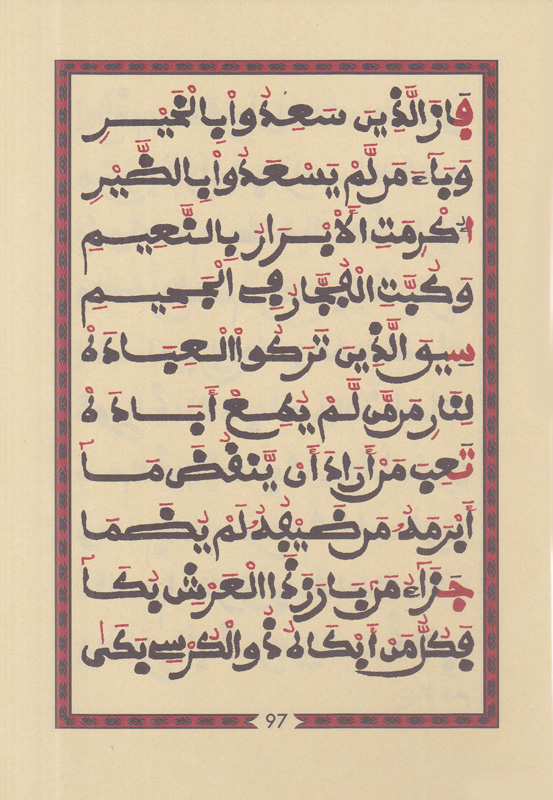 فَازَ الَّذِينَ سَعِدُوا بِالْخَيْرِ
وَبَاءَ مَن لَّمْ يَسْعَدُوا بِالضَّيْرِ
اُكْرِمَتِ الْأَبْرَارُ بِالنَّعِيمِ
وَكُبَّتِ الْفُجَّارُ فِي الْجَحِيمِ
سِيقَ الَّذِينَ تَرَكُوا الْعِبَادَهْ
لِنَارِ مَن مَّن لَّمْ يُطِعْ أَبَادَهْ
تَعِبَ مَنْ أَرَادَ أَن يَّنقُضَ مَا
أَبْرَمَهُ مَن ضَيْفُهُ لَمْ يُضَمَا
جَزَاءُ مَن بَارَزَ ذَا الْعَرْشِ بُكَا
فَكُلُّ مَنْ أَبْكَاهُ ذُو الْكُرْسِي بَكَى
97